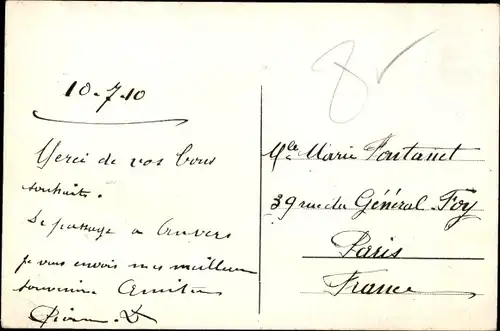 10-7-10
Merci de vos bons
souhaits.
De passage a Anvers
je vous envois mes meilleurs
souvenirs Amitiés
8
Mlle Marie Fontanet
39 rue du Général-Foy
Paris
France